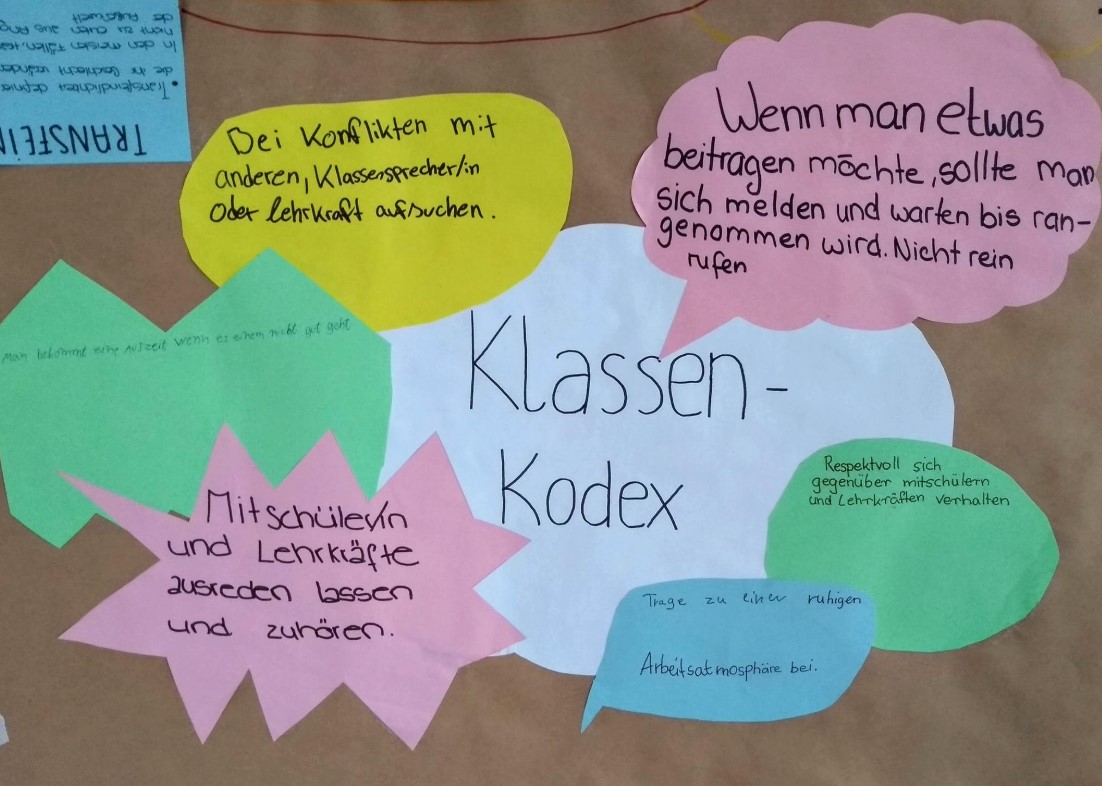 TRANSFEI
• Transfeindlichkeit
die ihr Geschlecht
In den meisten Fällen,
nicht zu outen aus
der Außenwelt
Bei Konflikten mit
anderen, Klassensprecher/in
oder Lehrkraft aufsuchen.
Wenn man etwas
beitragen möchte, sollte man
sich melden und warten bis ran-
genommen wird. Nicht rein
rufen
Man bekommt eine Auszeit wenn es einem nicht gut geht
Klassen-
Kodex
Respektvoll sich
gegenüber mitschülern
und Lehrkräften verhalten
Mitschüler/in
und Lehrkräfte
ausreden lassen
und zuhören.
Trage zu einer ruhigen
Arbeitsatmosphäre bei.